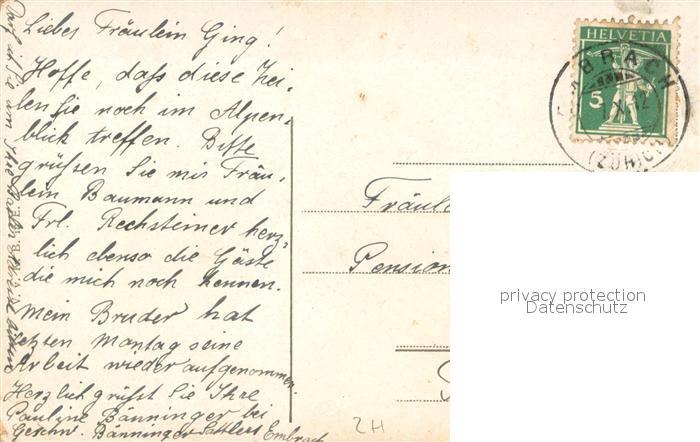 Liebes Fräulein Ging!
Hoffe, dass diese Zei-
len Sie noch im Alpen-
blick treffen. Bitte
grüssen Sie mir Fräu-
lein Baumann und
Frl. Rechsteiner herz-
lich ebenso die Gäste
die mich noch kennen.
Mein Bruder hat
letzten Montag seine
Arbeit wieder aufgenommen.
Herzlich grüsst Sie Ihre
Pauline Bänninger bei
Geschw. Bänninger Sattlers Embrach
Darf ich Sie um Ihre
HELVETIA
5
BRACH
(ZÜRICH)
Fräul
Pension
privacy protection
Datenschutz
ZH